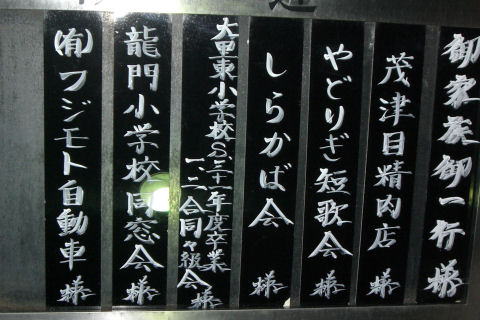 御家族御一行様
茂津目精肉店様
やどりぎ短歌会様
しらかば会様
大里東小学校S三十一年度卒業
一、二合同々級会様
龍門小学校同窓会様
(有)フジモト自動車様